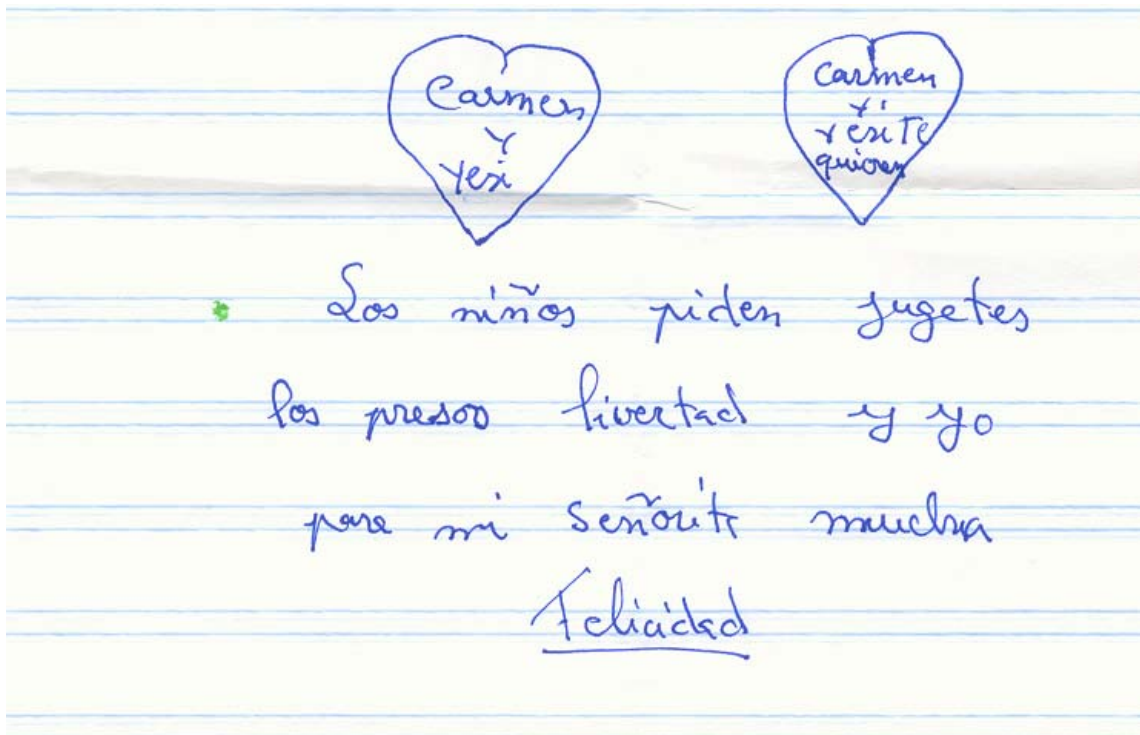 Carmen
y
Yesi
Carmen
y
Yesi Te
quieren
Los niños piden jugetes
los presos livertad y yo
para mi señorita mucha
Felicidad